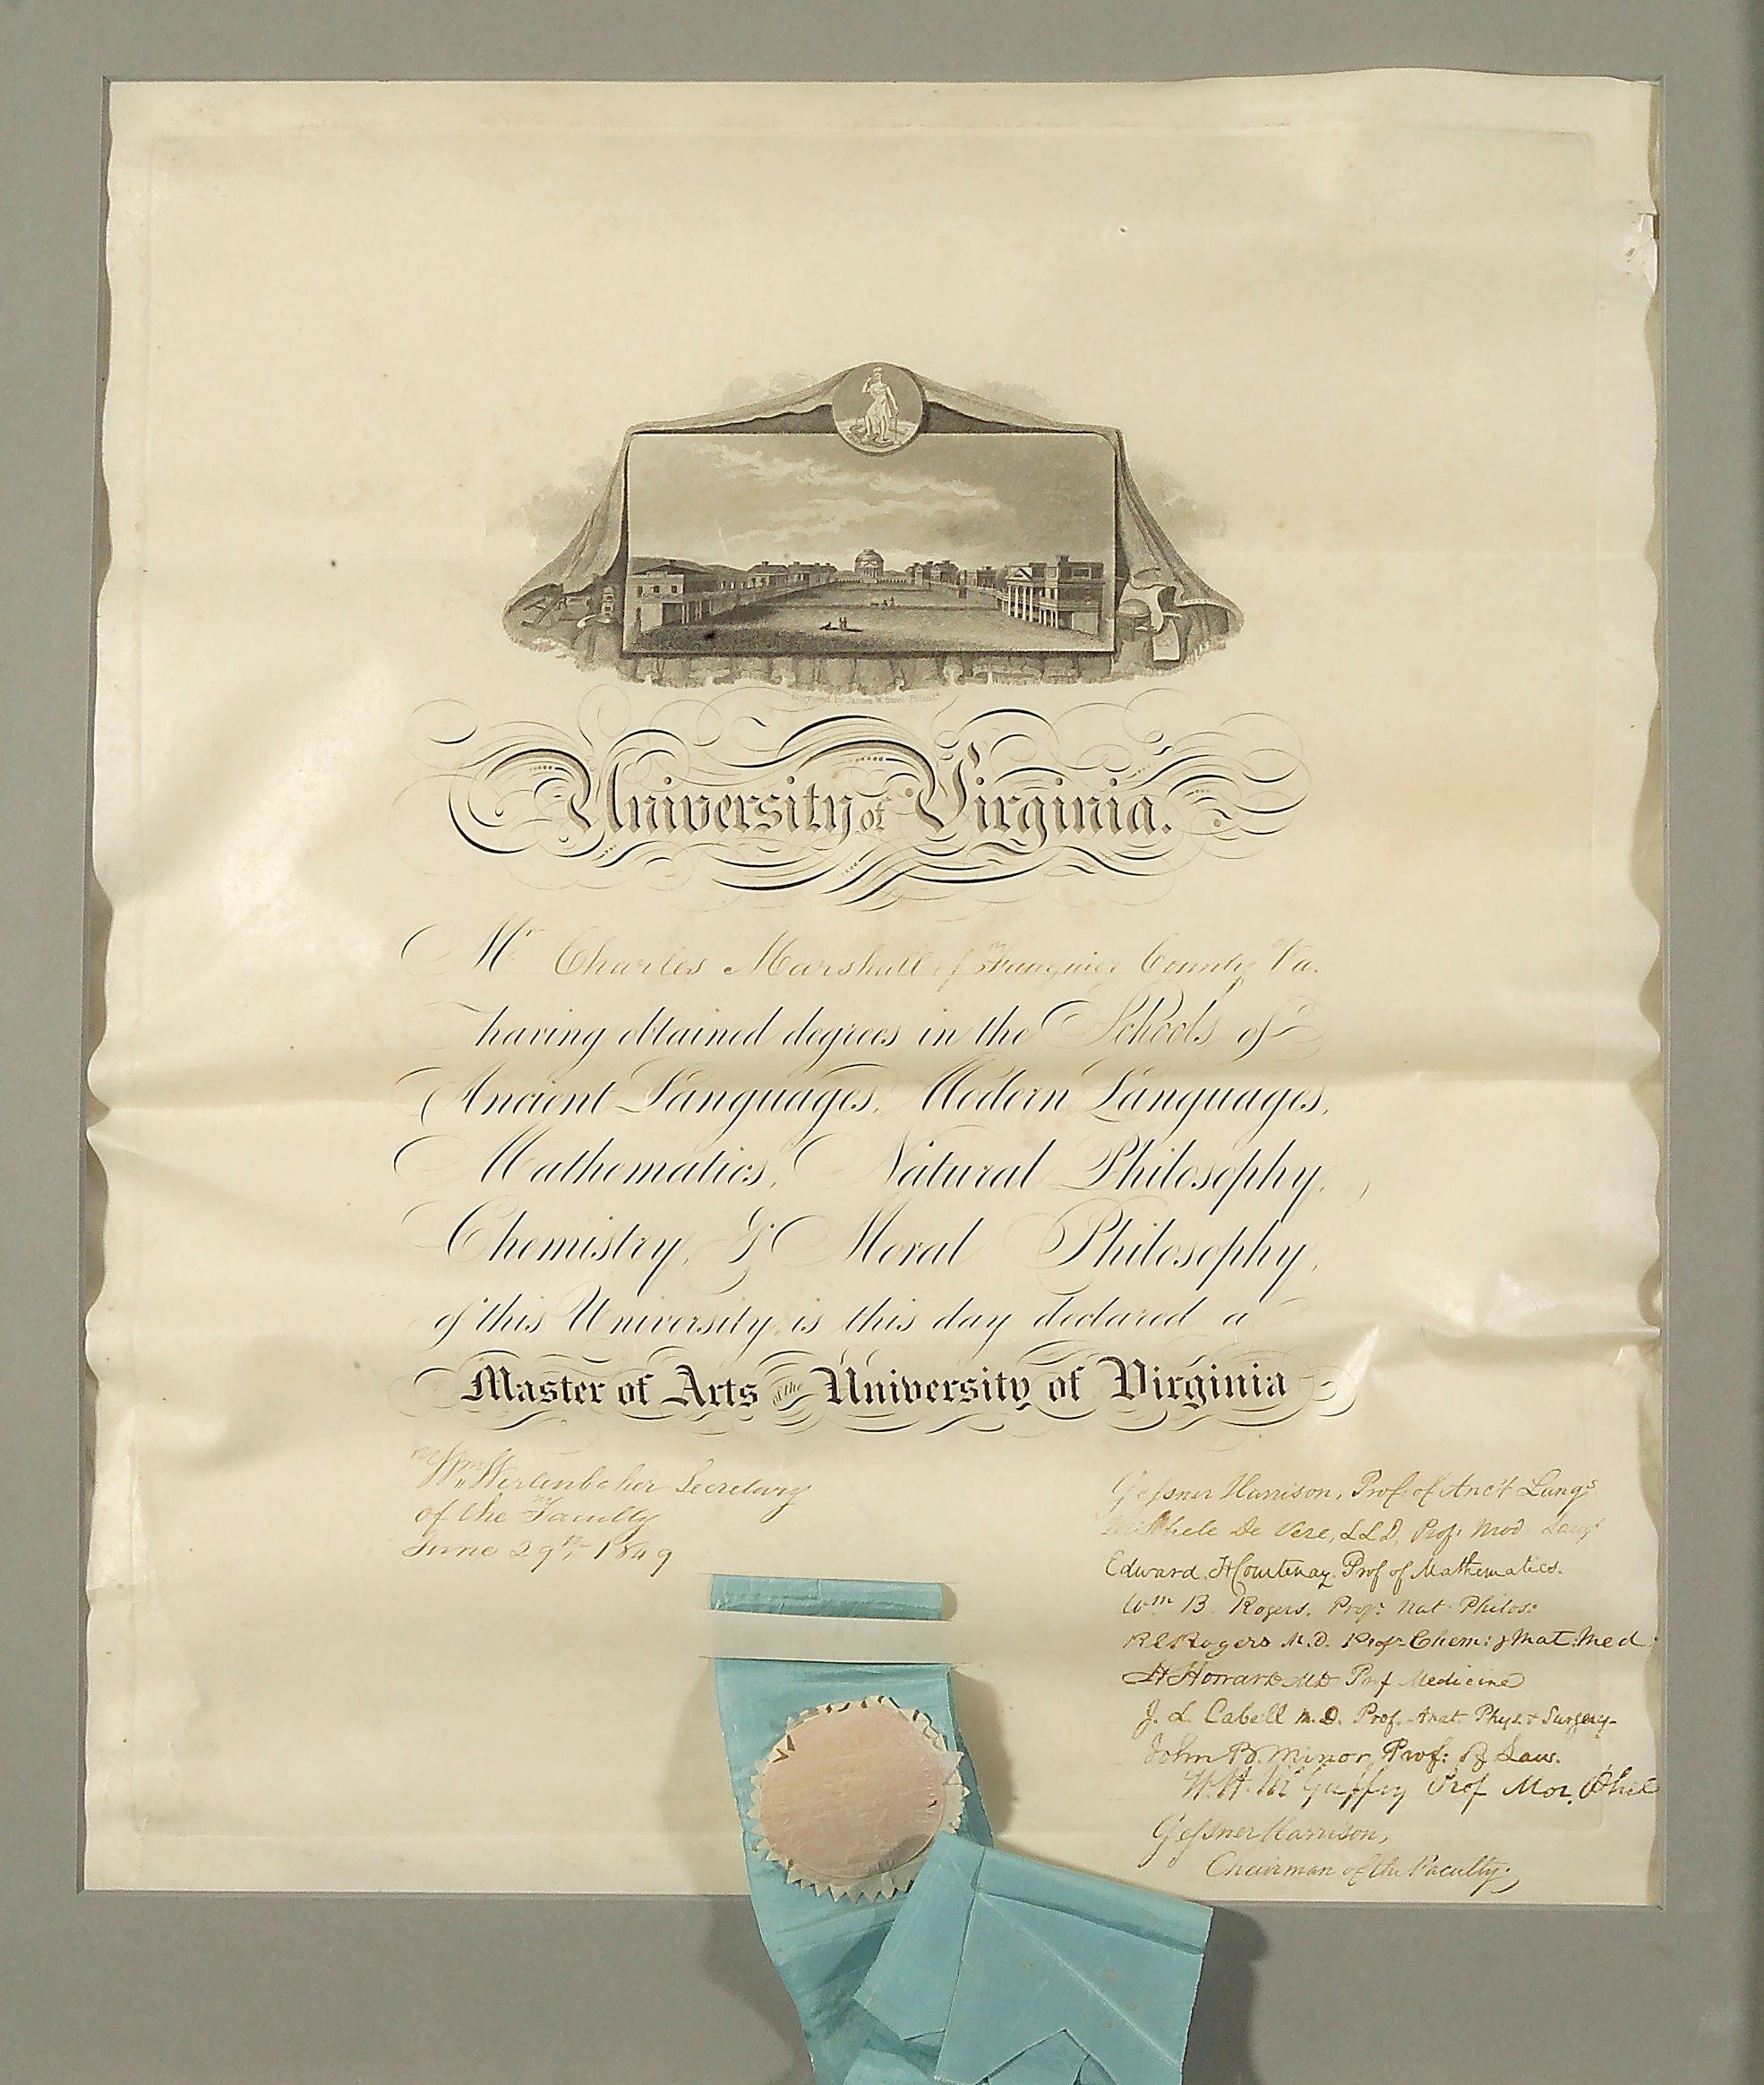 Engraved by James W. Steel Philada.
University of Virginia.
Mr. Charles Marshall of Fauquier County Va.
having obtained degrees in the Schools of
Ancient Languages, Modern Languages,
Mathematics, Natural Philosophy,
Chemistry, & Moral Philosophy,
of this University, is this day declared a
Master of Arts of the University of Virginia
Wm Wertenbaker Secretary
of the Faculty
June 29th 1849
Gessner Harrison, Prof. of Anct Langs.
Schele De Vere, LLD, Prof: Mod Langs
Edward. H Courtenay. Prof of Mathematics.
Wm B. Rogers. Prof: Nat Philos:
R E Rogers M.D. Prof Chem: & Mat: Med:
H Howard MD Prof Medicine
J. L. Cabell M.D. Prof. Anat. Phys. & Surgery
John B. Minor, Prof: of Law.
W. H. McGuffey Prof Mor. Phil
Gessner Harrison,
Chairman of the Faculty.